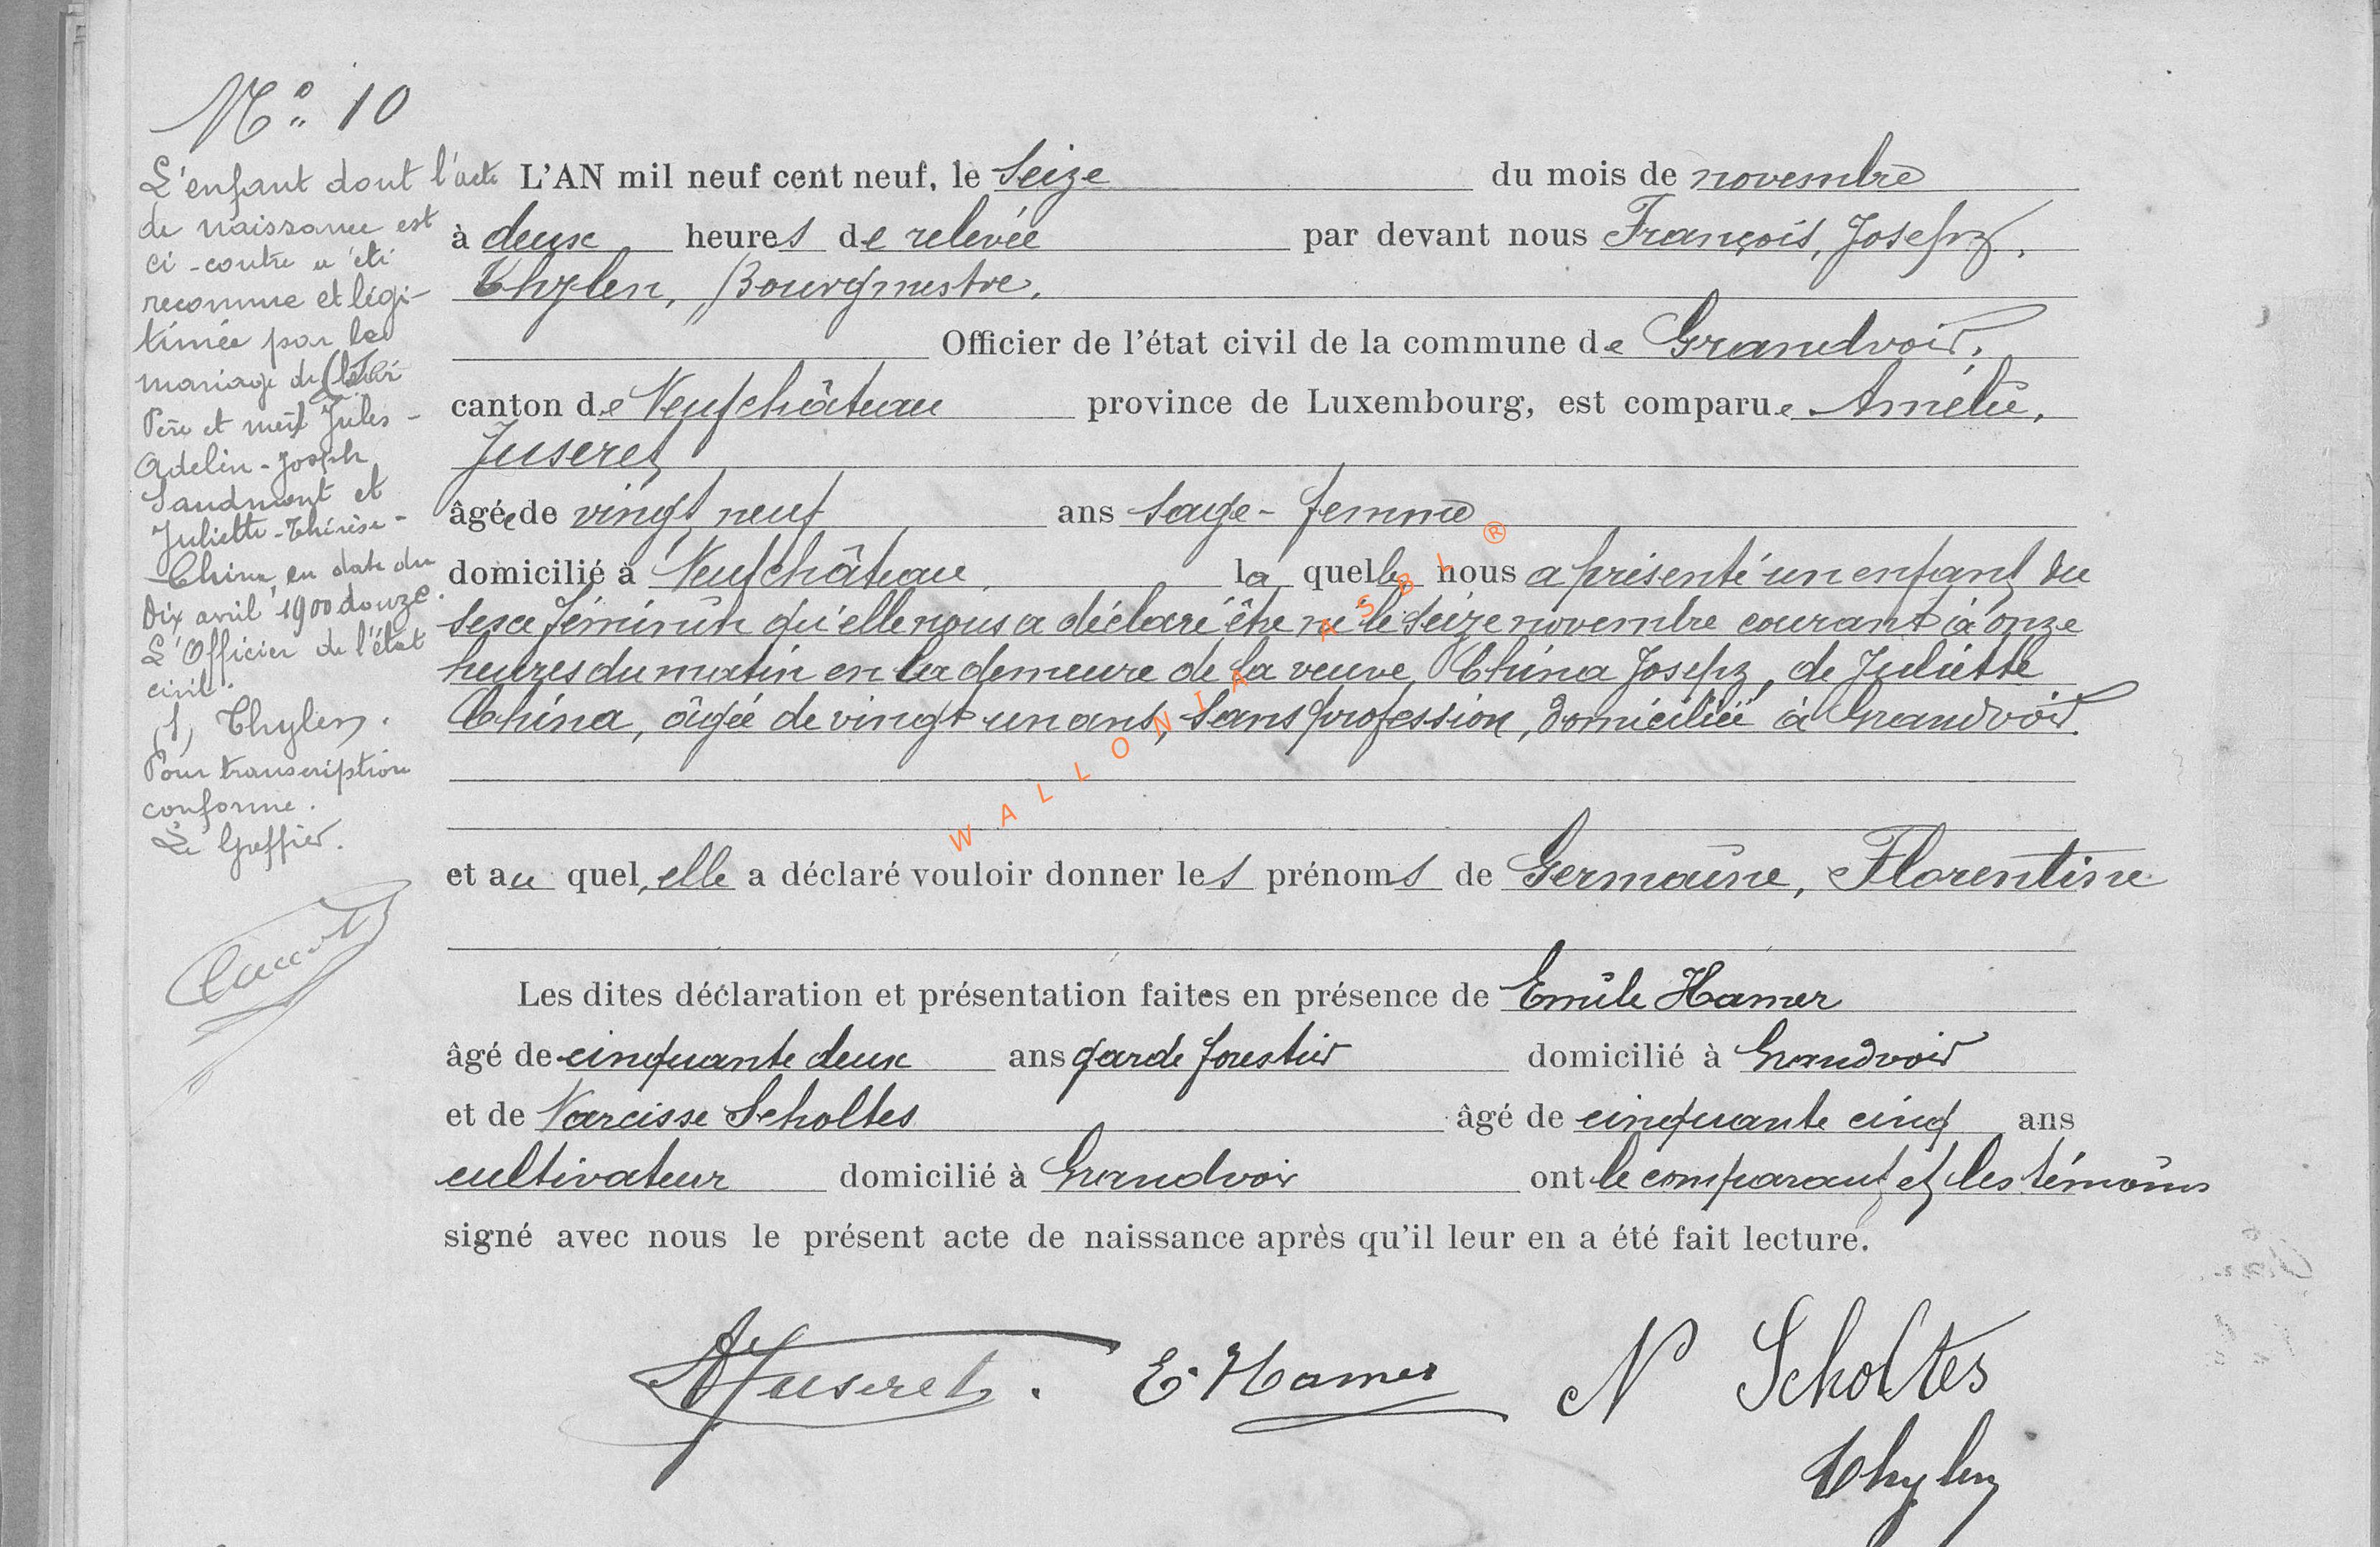 N° 10
L'enfant dont l'acte
de naissance est
ci-contre a été
reconnue et légi-
timée par le
mariage de
Père et mère Jules-
Adelin-Joseph
Saudmont et
Juliette-Thérèse-
China, en date du
Dix avril 1900 douze.
L'Officier de l'état
civil.
(s) Thylen.
Pour transcription
conforme.
Le Greffier.
L'AN mil neuf cent neuf, le seize du mois de novembre
à deux heures de relevée par devant nous François, Joseph,
Thylen, Bourgmestre,
Officier de l'état civil de la commune de Grandvoir,
canton de Neufchâteau province de Luxembourg, est comparue Amélie,
Juseret
âgée de vingt neuf ans sage-femme
domicilié à Neufchâteau la quelle nous a présenté un enfant du
sexe féminin qu'elle nous a déclaré être né le seize novembre courant à onze
heures du matin en la demeure de la veuve China Joseph, de Juliette
China, âgée de vingt un ans, sans profession, domiciliée à Grandvoir.
et au quel, elle a déclaré vouloir donner les prénoms de Germaine, Florentine
Les dites déclaration et présentation faites en présence de Emile Hamer
âgé de cinquante deux ans garde forestier domicilié à Grandvoir
et de Narcisse Scholtes âgé de cinquante cinq ans
cultivateur domicilié à Grandvoir ont le comparant et les témoins
signé avec nous le présent acte de naissance après qu'il leur en a été fait lecture.
A Juseret. E. Hamer N Scholtes
Thylen
WALLONIA ASBL ®